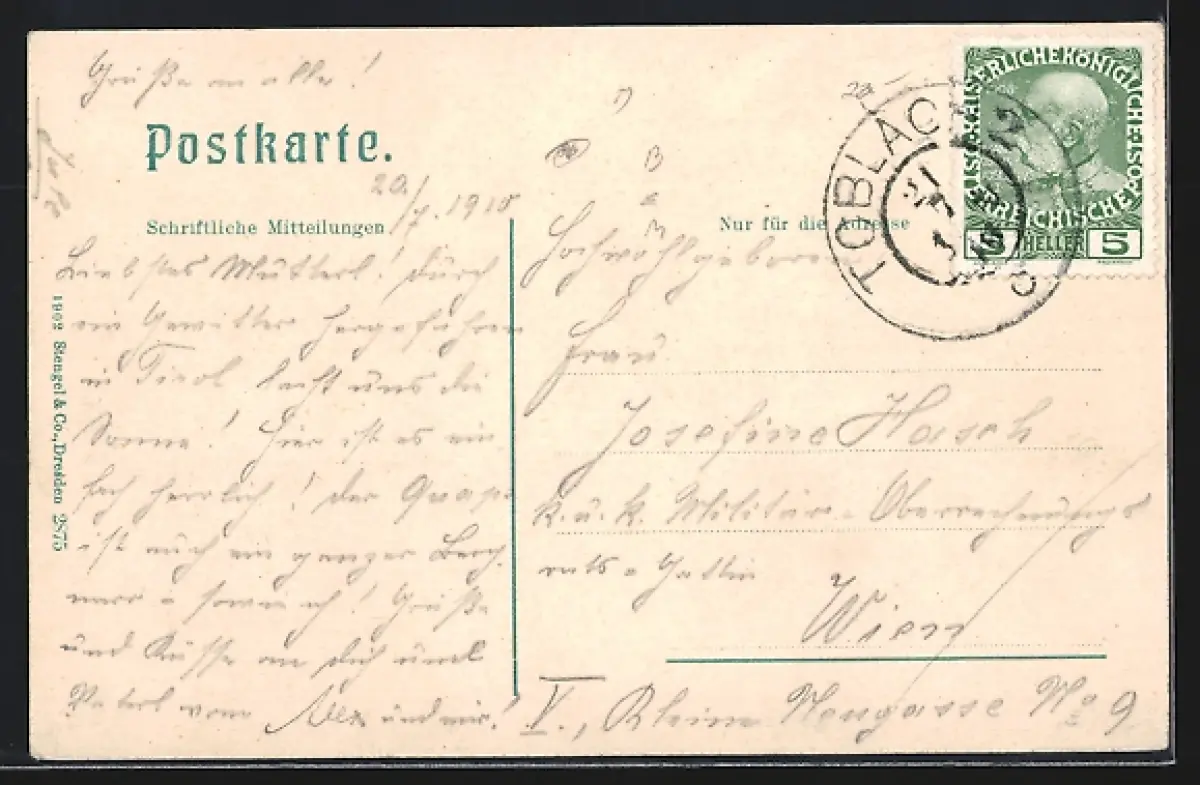 Grüße an alle!
Postkarte.
20./7. 1910
Schriftliche Mitteilungen
Liebstes Mutterl! Durch
ein Gewitter hergefahren
in Tirol lacht uns die
Sonne! Hier ist es ein
fach herrlich! Der
ist auch ein ganzer Berg
! Grüße
und Küsse an Dich und
Vaterl vom Alex und mir!
1902 Stengel & Co., Dresden 2875
KAISERLICHEKÖNIGLICHE ÖSTERREICHISCHE POST
5 HELLER 5
TOBLACH 2
Nur für die Adresse
Hochwohlgeboren
Frau
Josefine Hasch
k. u. k. Militär-Oberrechnungs
rats-Gattin
Wien
V., Kleine Neugasse No 9